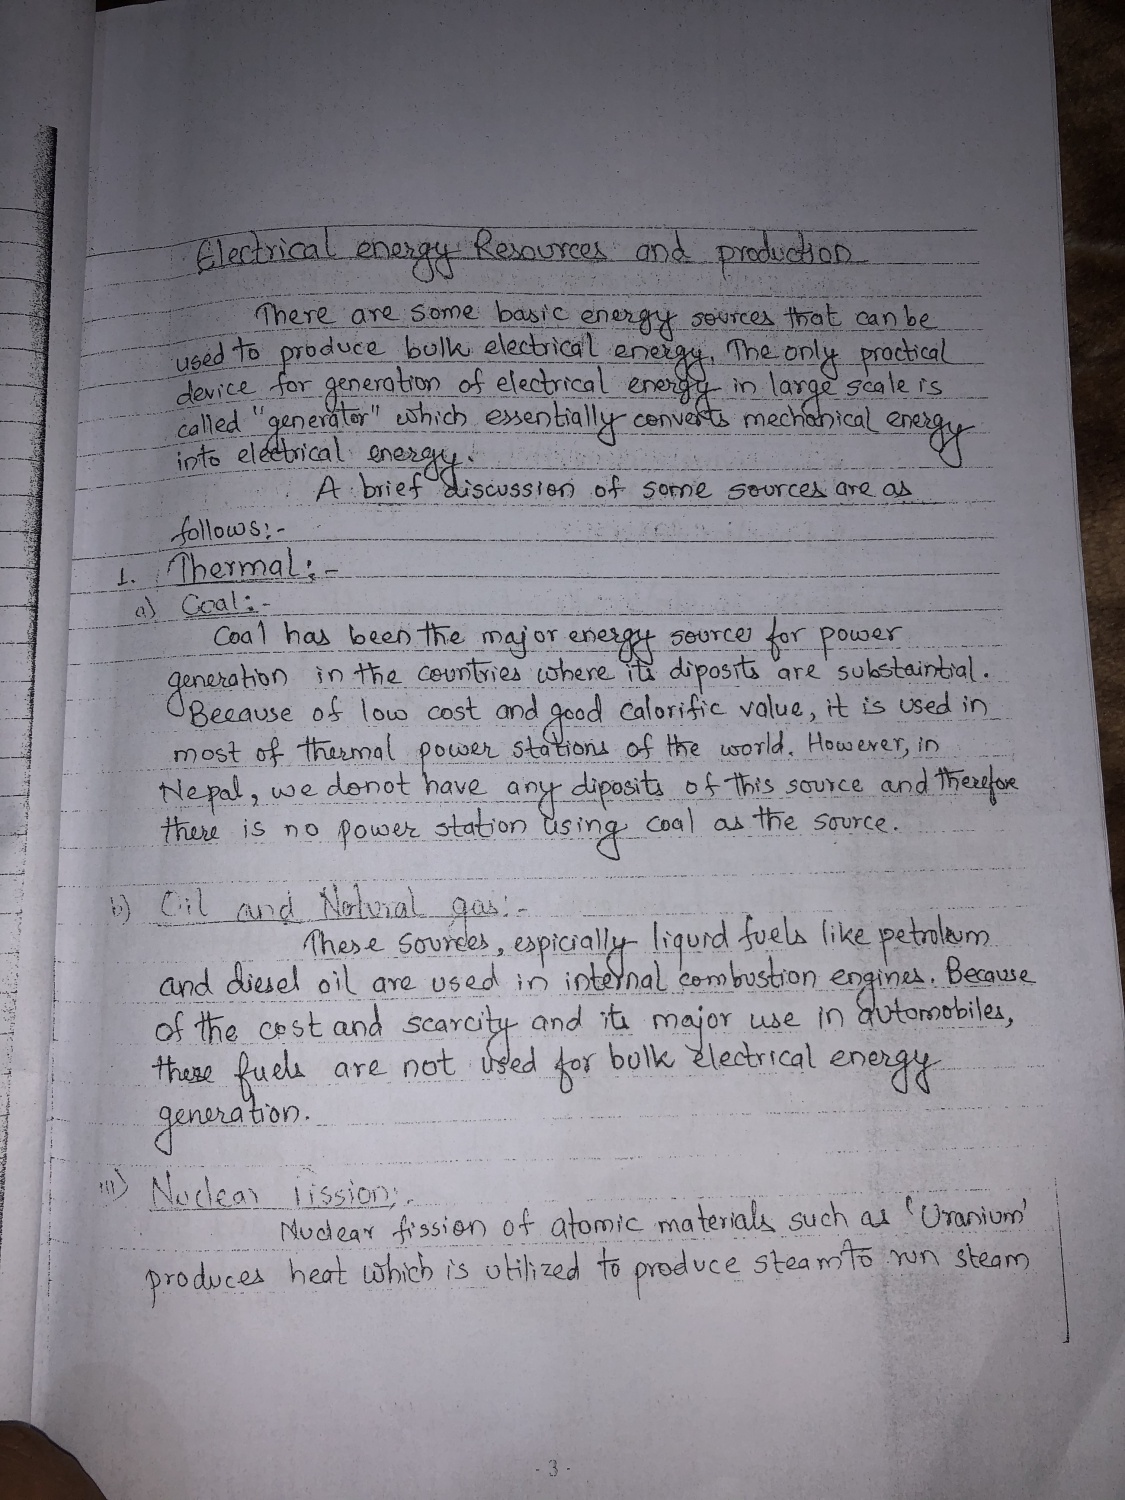 Electrical energy Resources and production
There are some basic energy sources that can be
used to produce bulk electrical energy. The only practical
device for generation of electrical energy in large scale is
called "generator" which essentially converts mechanical energy
into electrical energy.
A brief discussion of some sources are as
follows:-
1. Thermal:-
a) Coal:-
Coal has been the major energy source for power
generation in the countries where its diposits are substaintial.
Because of low cost and good calorific value, it is used in
most of thermal power stations of the world. However, in
Nepal, we donot have any diposits of this source and therefore
there is no power station using coal as the source.
b) Oil and Natural gas:-
These sources, espicially liquid fuels like petroleum
and diesel oil are used in internal combustion engines. Because
of the cost and scarcity and its major use in automobiles,
these fuels are not used for bulk electrical energy
generation.
iii) Nuclear fission:-
Nuclear fission of atomic materials such as 'Uranium'
produces heat which is utilized to produce steam to run steam
- 3 -